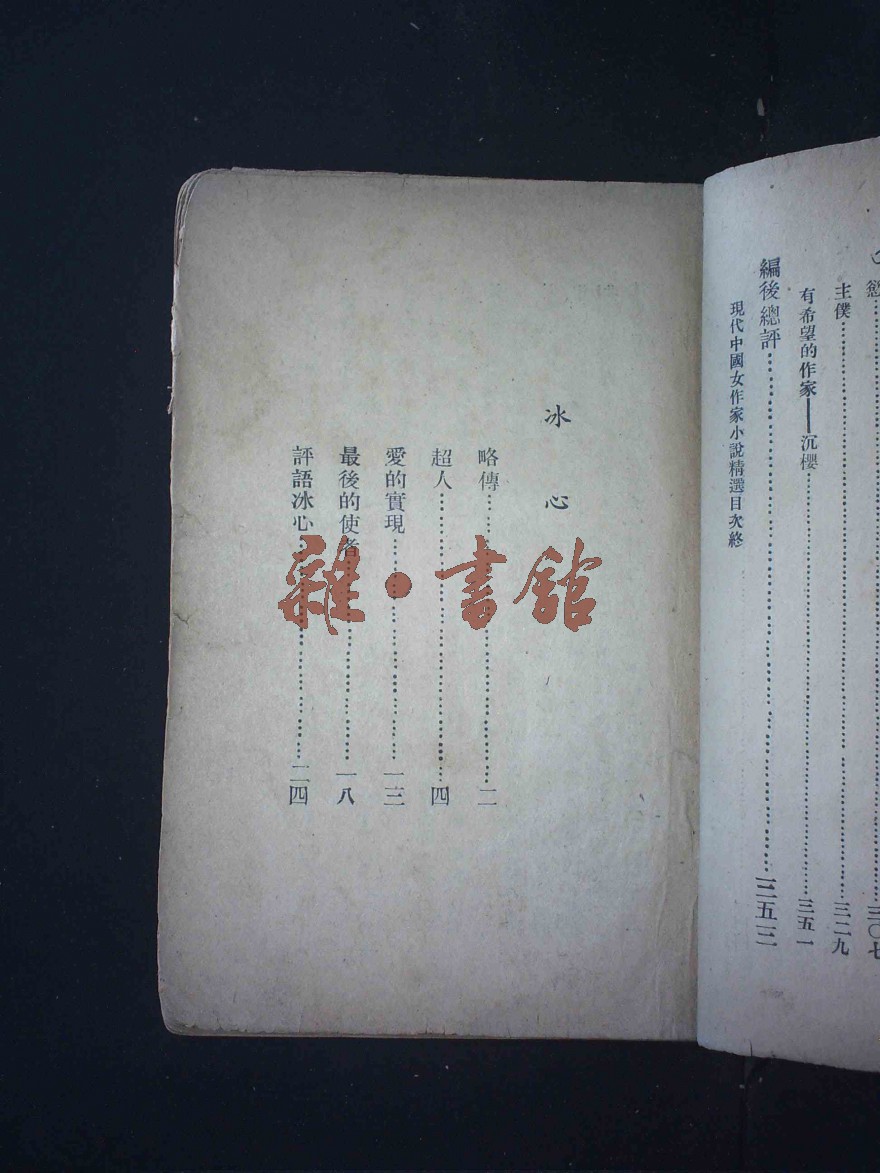 慾……三〇七
主僕……三二九
有希望的作家——沉櫻……三五一
編後總評……三五三
現代中國女作家小說精選目次終
冰心
略傳……二
超人……四
愛的實現……一三
最後的使者……一八
評語冰心……二四
雜·書館